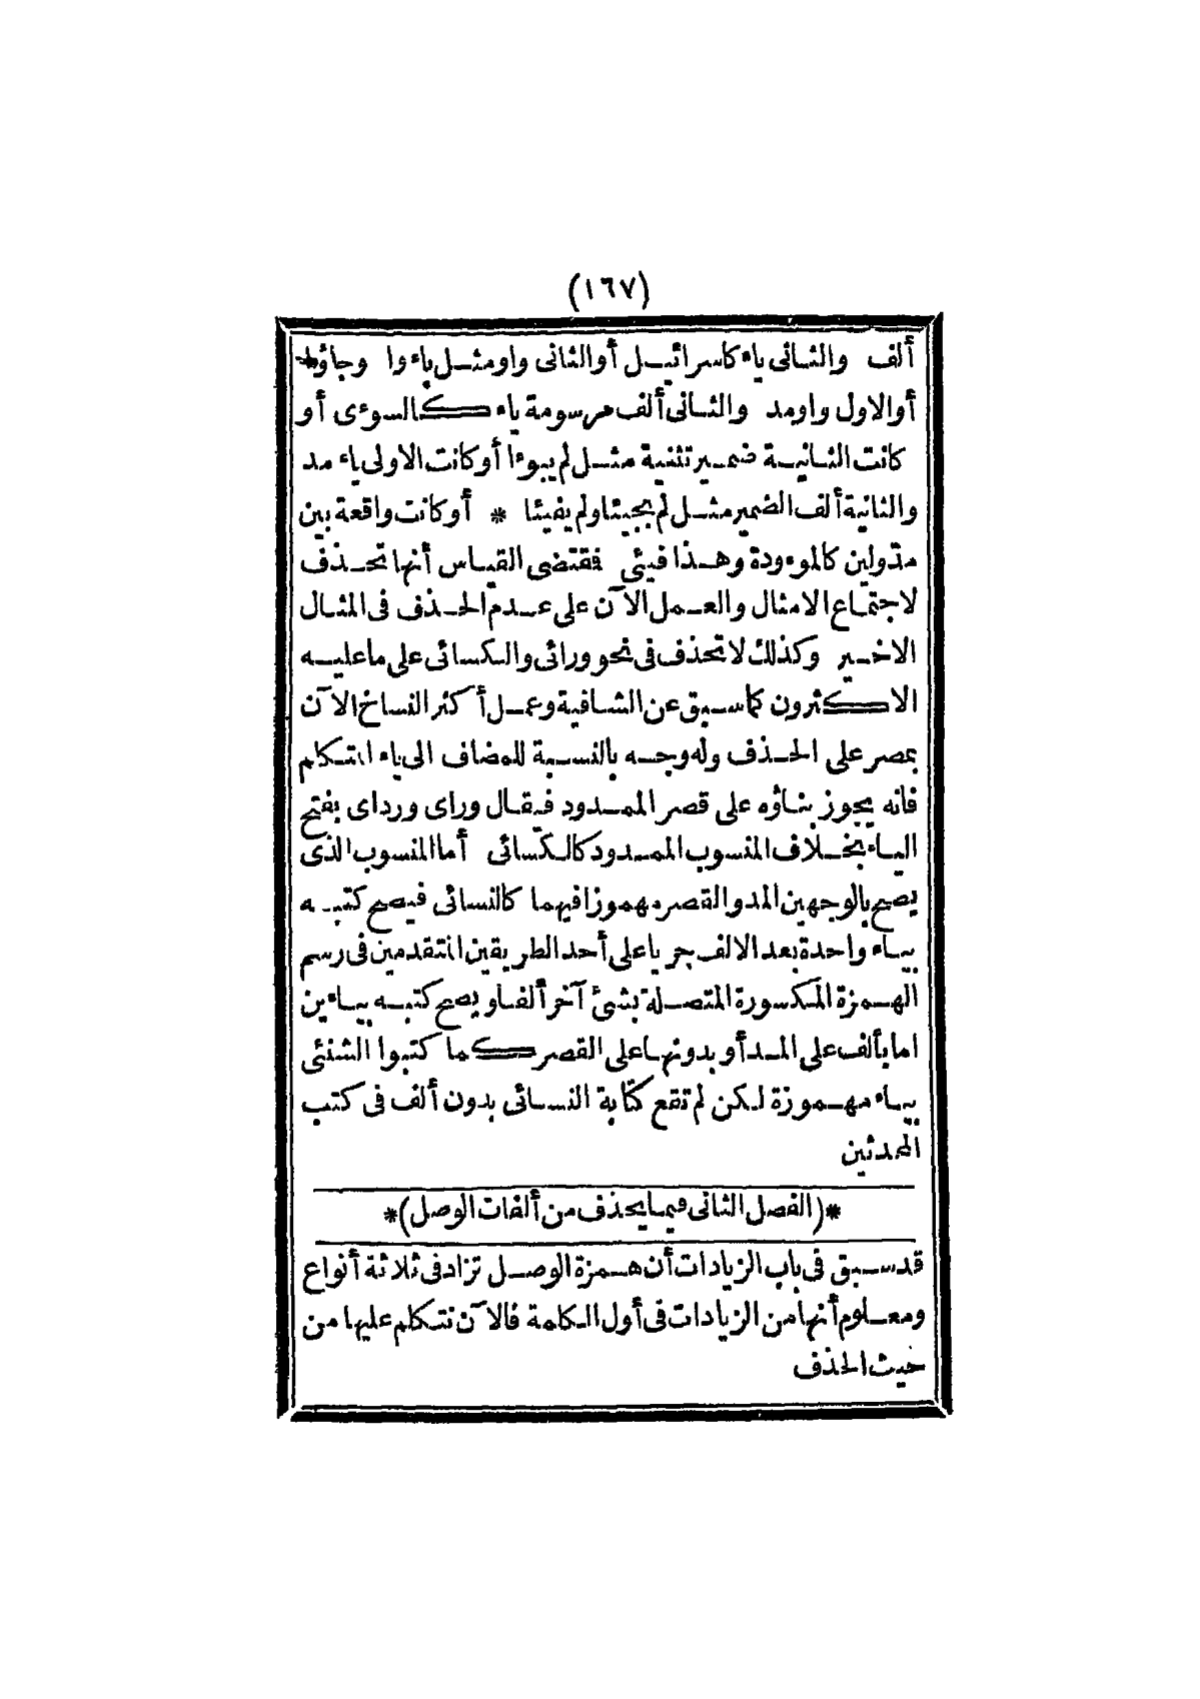 (١٦٧)
ألف والثانى ياء كاسرائيل أو الثانى واو مثل باءوا وجاؤا*
أو الاول واو مد والثانى ألف مرسومة ياء كالسوءى أو
كانت الثانية ضمير تثنية مثل لم يبوءا أو كانت الاولى ياء مد
والثانية ألف الضمير مثل لم يجيئا ولم يفيئا * أو كانت واقعة بين
مدولين كالموءودة وهذا فيئى فقتضى القياس أنها تحذف
لاجتماع الامثال والعمل الآن على عدم الحذف فى المثال
الاخير وكذلك لا تحذف فى نحو ورائى والكسائى على ما عليه
الاكثرون كما سبق عن الشافية وعمل أكثر النساخ الآن
بمصر على الحذف وله وجه بالنسبة للمضاف الى ياء المتكلم
فانه يجوز بناؤه على قصر الممدود فيقال وراى ورداى بفتح
الياء بخلاف المنسوب الممدود كالكسائى أما المنسوب الذى
يصح بالوجهين المد والقصر مهموزا فيهما كالنسائى فيصح كتبه
بياء واحدة بعد الالف جريا على أحد الطريقين المتقدمين فى رسم
الهمزة المكسورة المتصلة بشئ آخر ألفا ويصح كتبه بياءين
اما بألف على المد أو بدونها على القصر كما كتبوا الشنئى
بياء مهموزة لكن لم تقع كتابة النسائى بدون ألف فى كتب
المحدثين
*(الفصل الثانى فيما يحذف من ألفات الوصل)*
قد سبق فى باب الزيادات أن همزة الوصل تزاد فى ثلاثة أنواع
ومعلوم أنها من الزيادات فى أول الكلمة فالآن نتكلم عليها من
حيث الحذف